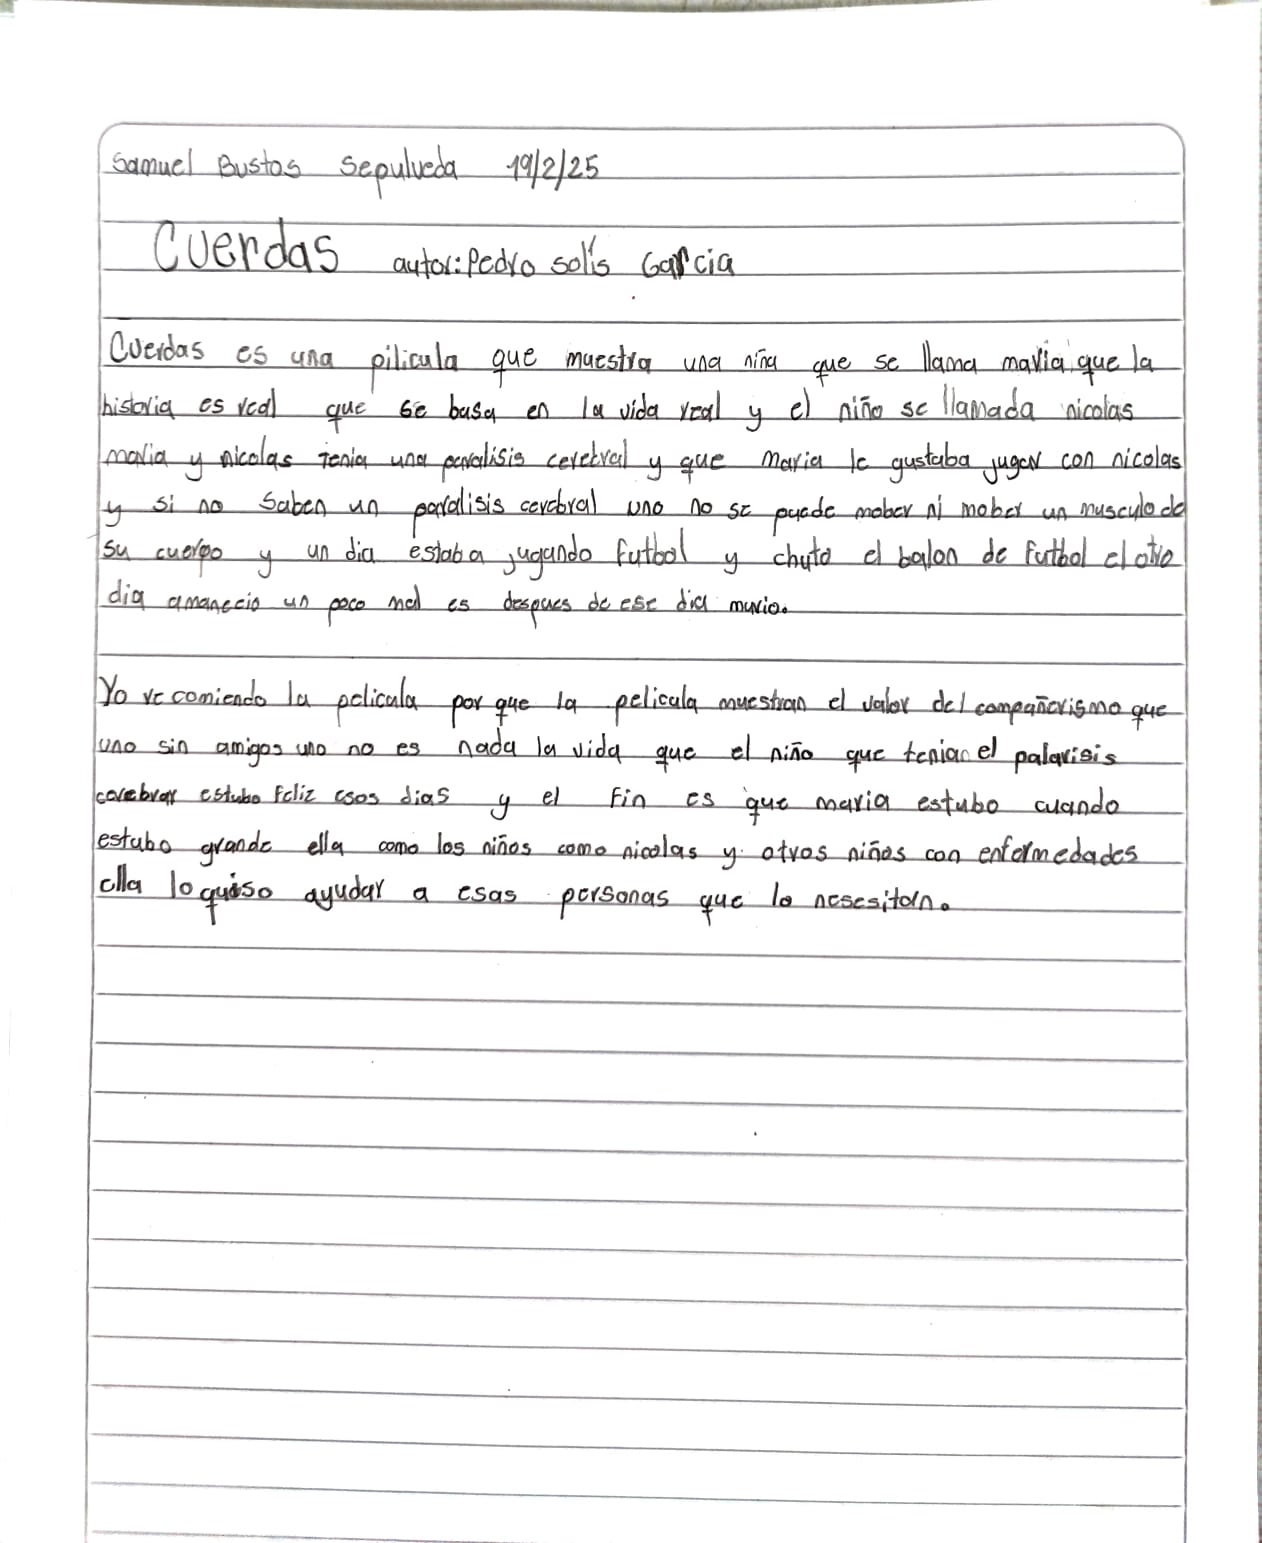 Samuel Bustos Sepulveda 19/2/25
Cuerdas autor: Pedro solís Garcia
Cuerdas es una pilicula que muestra una niña que se llama maria que la
historia es real que se basa en la vida real y el niño se llamada nicolas
maria y nicolas tenia una paralisis cerebral y que maria le gustaba jugar con nicolas
y si no saben un paralisis cerebral uno no se puede mober ni mober un musculo de
su cuerpo y un dia estaba jugando futbol y chuto el balon de futbol el otro
dia amanecio un poco mal es despues de ese dia murio.
Yo recomiendo la pelicula por que la pelicula muestran el valor del compañerismo que
uno sin amigos uno no es nada la vida que el niño que tenian el palarisis
cerebral estubo feliz esos dias y el fin es que maria estubo cuando
estubo grande ella como los niños como nicolas y otros niños con enfermedades
ella lo quiso ayudar a esas personas que lo nesesitan.